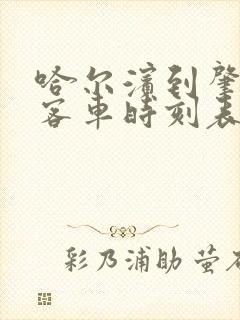 哈尔滨到肇
客车时刻表
彩乃浦助 萤石